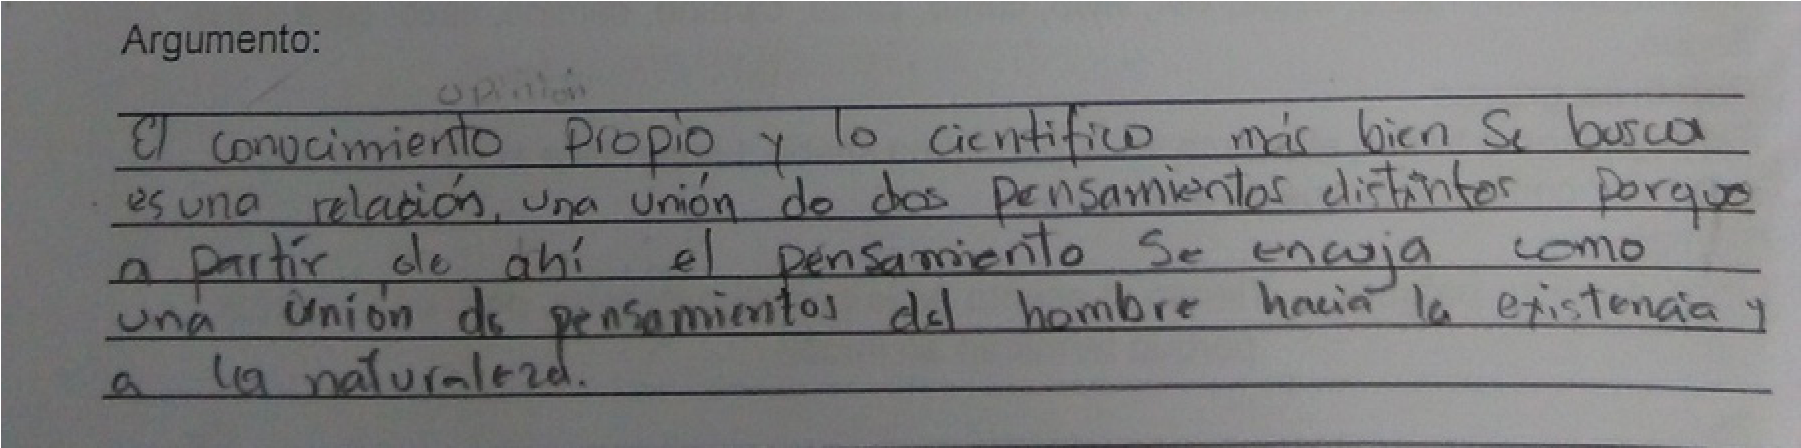 Argumento:
opinión
El conocimiento propio y lo cientifico más bien se busca
es una relación, una unión de dos pensamientos distintos porque
a partir de ahí el pensamiento se encaja como
una unión de pensamientos del hombre hacia la existencia y
a la naturaleza.